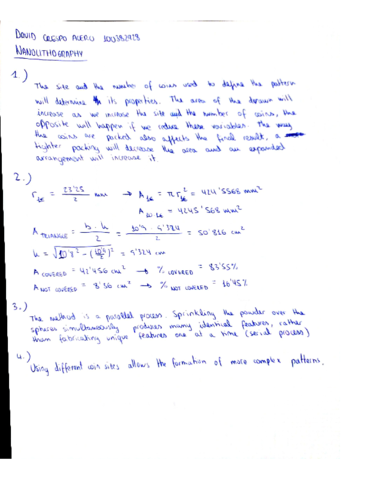 DAVID CRESPO ACERO 100382928
NANOLITHOGRAPHY
1.)
The size and the number of coins used to define the pattern
will determine its properties. The area of the drawn will
increase as we increase the size and the number of coins, the
opposite will happen if we reduce these variables. The way
the coins are packed also affects the final result, a
tighter packing will decrease the area and an expanded
arrangement will increase it
2.)
r1€ = 23'25 / 2 mm → A1€ = π r1€² = 424'5568 mm²
A10 1€ = 4245'568 mm²
A TRIANGLE = b · h / 2 = 10'8 · 9'324 / 2 = 50'816 cm²
h = = 9'324 cm
A COVERED = 42'456 cm² → % COVERED = 83'55%
A NOT COVERED = 8'36 cm² → % NOT COVERED = 16'45%
3.)
The method is a parallel process. Sprinkling the powder over the
spheres simultaneously produces many identical features, rather
than fabricating unique features one at a time (serial process)
4.)
Using different coin sizes allows the formation of more complex patterns.